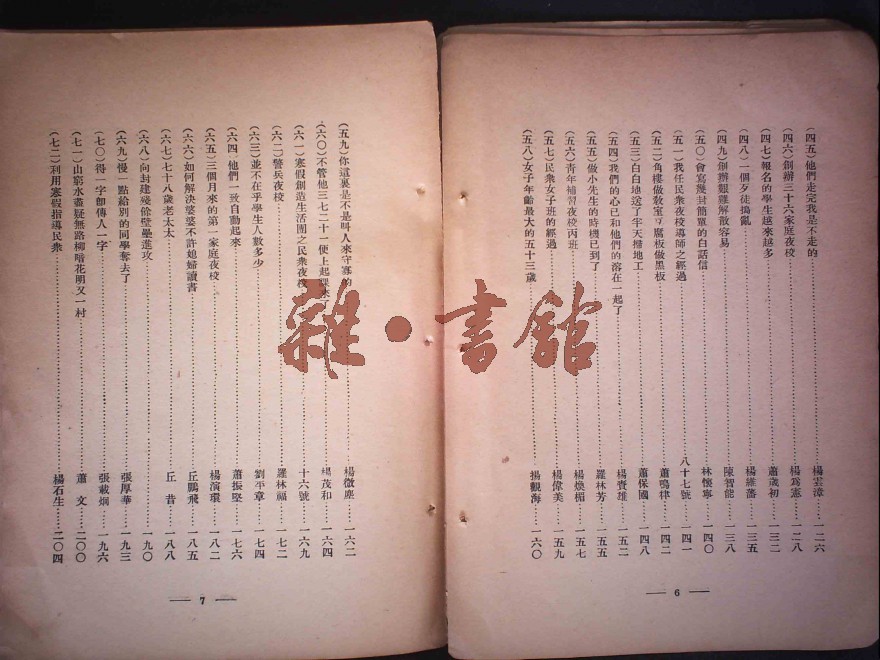 (四五)他們走完我是不走的……楊雲漳……一二六
(四六)創辦三十六家庭夜校……楊爲憲……一二八
(四七)報名的學生越來越多……蕭歲初……一三二
(四八)一個歹徒搗亂……楊維藩……一三五
(四九)創辦艱難解散容易……陳智能……一三八
(五〇)會寫幾封簡單的白話信……林懷寧……一四〇
(五一)我任民衆夜校導師之經過……八十七號……一四一
(五二)角樓做教室瓦屬板做黑板……蕭鳴律……一四二
(五三)白白地送了半天掃地工……蕭保國……一四八
(五四)我們的心已和他們的溶在一起了……楊賚雄……一五二
(五五)做小先生的時機已到了……羅林芳……一五五
(五六)青年補習夜校丙班……楊煥楣……一五七
(五七)民衆女子班的經過……楊偉美……一五九
(五八)女子年齡最大的五十三歲……揚觀海……一六〇
— 6 —
(五九)你這裏是不是叫人來守寡的……楊徵塵……一六二
(六〇)不管他三七二十一便上起課來了……楊茂和……一六四
(六一)寒假創造生活團之民衆夜校……十六號……一六九
(六二)警兵夜校……羅林福……一七二
(六三)並不在乎學生人數多少……劉平章……一七四
(六四)他們一致自動起來……蕭振堅……一七六
(六五)三個月來的第一家庭夜校……楊演環……一八二
(六六)如何解決婆婆不許媳婦讀書……丘鵬飛……一八五
(六七)七十八歲老太太……丘昔……一八八
(六八)向封建殘餘壁壘進攻……一九〇
(六九)慢一點給別的同學奪去了……張厚華……一九三
(七〇)得一字卽傳人一字……張載炯……一九六
(七一)山窮水盡疑無路柳暗花明又一村……蕭文……二〇〇
(七二)利用寒假指導民衆……楊石生……二〇四
— 7 —
雜·書館